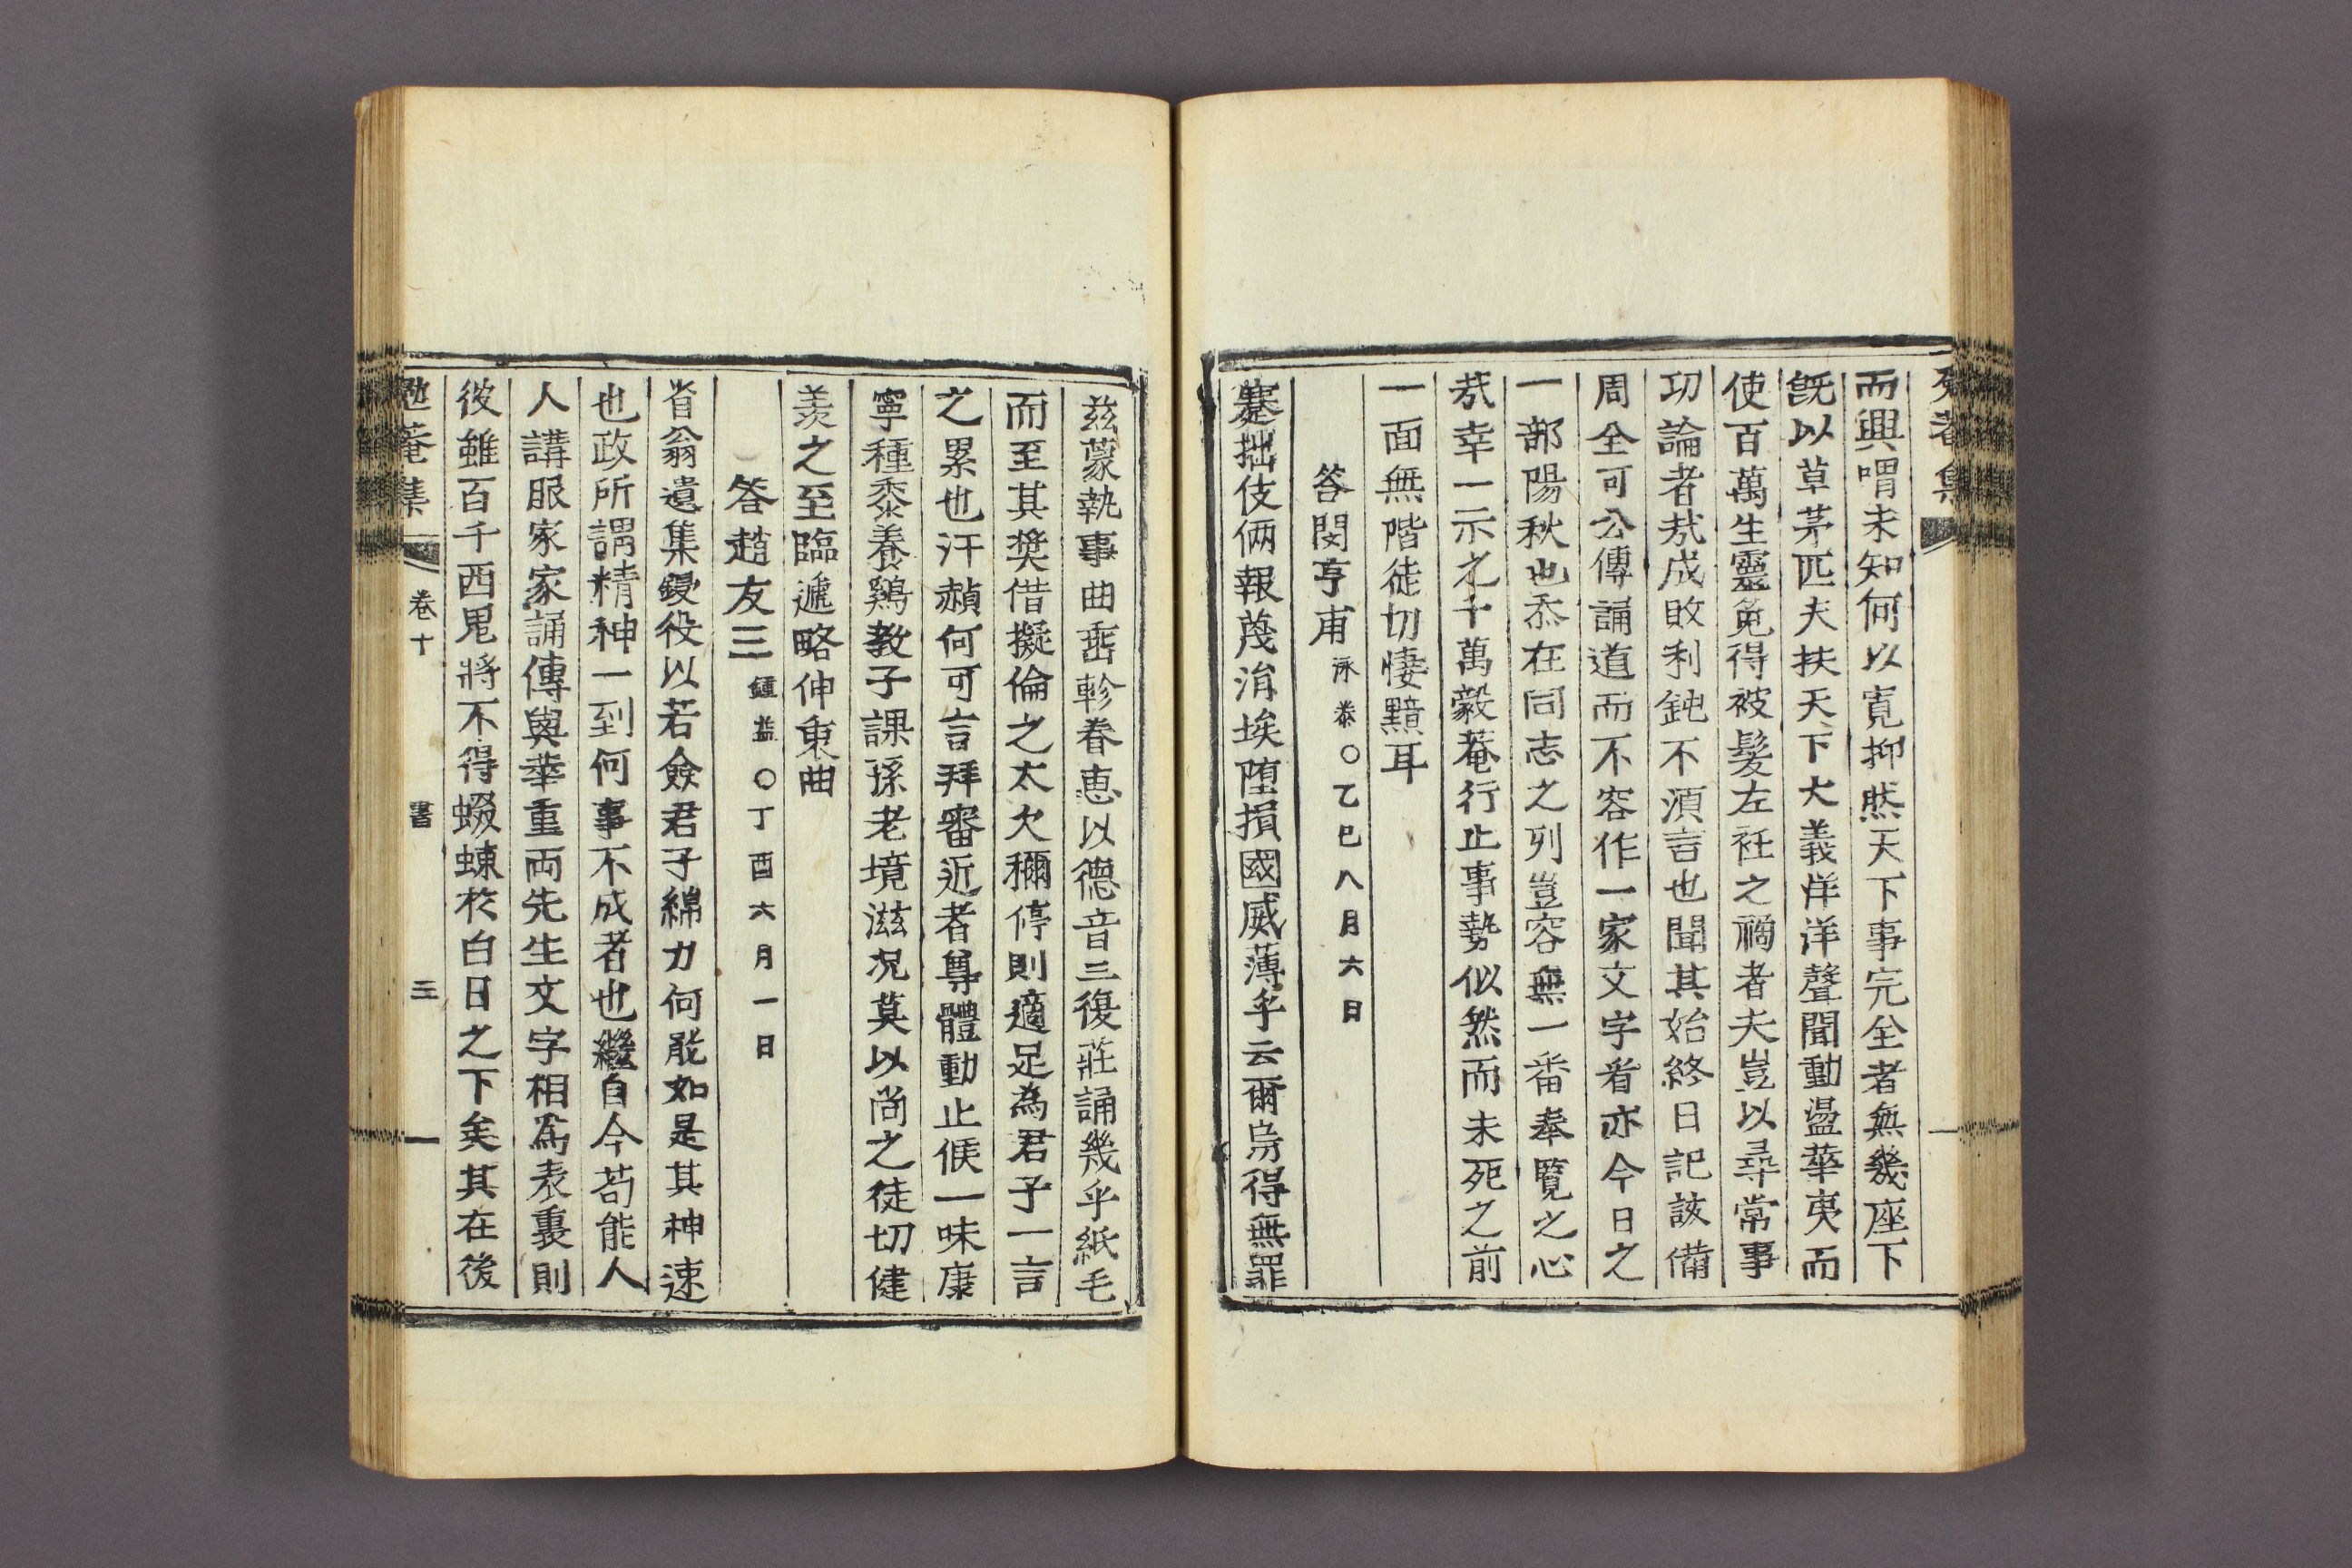 而興喟未知何以寬抑然天下事完全者無幾座下
旣以草茅匹夫扶天下大義洋洋聲聞動盪華夷而
使百萬生靈免得被髮左衽之禍者夫豈以尋常事
功論者㢤成敗利鈍不須言也聞其始終日記該備
周全可公傳誦道而不容作一家文字看亦今日之
一部陽秋也忝在同志之列豈容無一番奉覽之心
㢤幸一示之千萬毅菴行止事勢似然而未死之前
一面無階徒切悽黯耳
答閔亨甫 泳㤗〇乙巳八月六日
蹇拙伎倆報蔑涓埃墮損國威薄乎云爾烏得無罪
玆蒙執事曲垂軫眷惠以德音三復莊誦幾乎紙毛
而至其奬借擬倫之太欠稱停則適足為君子一言
之累也汗赬何可言拜審近者尊體動止候一味康
寧種黍養鷄敎子課孫老境滋况莫以尚之徒切健
羡之至臨遞略伸衷曲
答趙友三 鍾益〇丁酉六月一日
省翁遺集鋟役以若僉君子綿力何能如是其神速
也政所謂精神一到何事不成者也繼自今苟能人
人講服家家誦傳與華重兩先生文字相爲表裏則
彼雖百千西鬼將不得蝃蝀於白日之下矣其在後
勉菴集 卷十 書 三